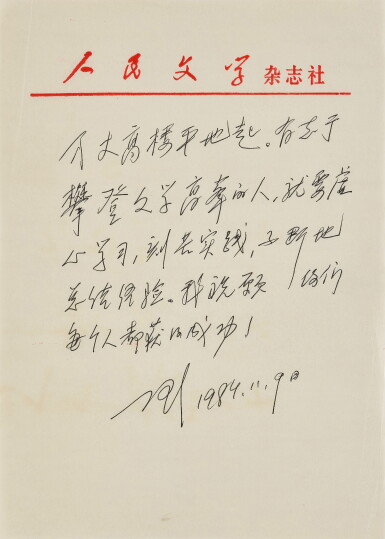 人民文学 杂志社
万丈高楼平地起。有志于
攀登文学高峰的人，就要虚
心学习，刻苦实践，不断地
总结经验。我祝愿 你们
每个人都获得成功！
1984.11.9日